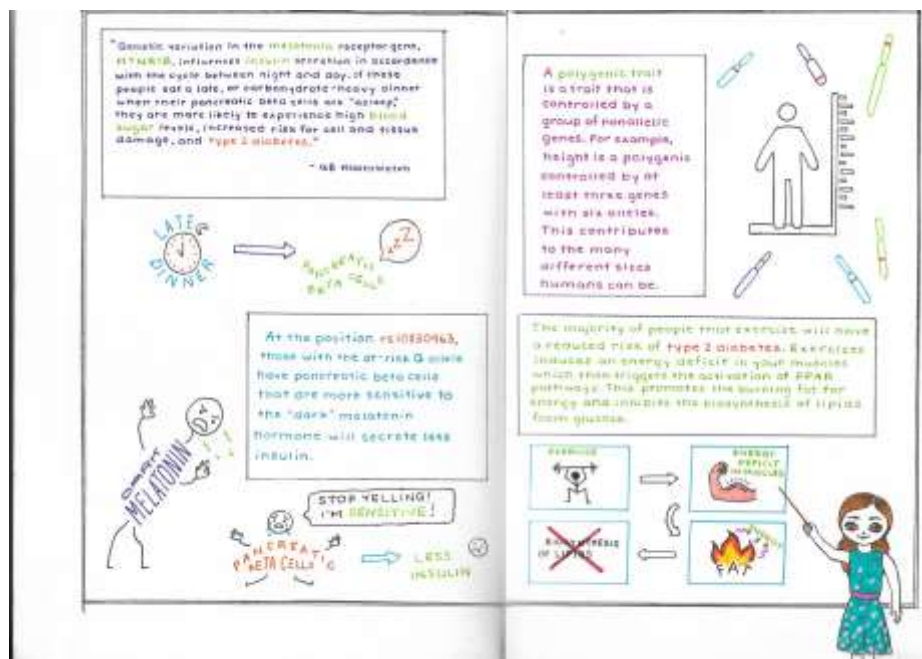 "Genetic variation in the melatonin receptor gene,
MTNR1B, influences insulin secretion in accordance
with the cycle between night and day. If these
people eat a late, or carbohydrate-heavy dinner
when their pancreatic beta cells are "asleep,"
they are more likely to experience high blood
sugar levels, increased risk for cell and tissue
damage, and type 2 diabetes."
LATE
DINNER
zzZ
PANCREATIC
BETA CELLS
At the position rs10830963,
those with the at-risk G allele
have pancreatic beta cells
that are more sensitive to
the "dark" melatonin
hormone will secrete less
insulin.
MELATONIN
STOP YELLING!
I'M SENSITIVE!
PANCREATIC
BETA CELLS
LESS
INSULIN
A polygenic trait
is a trait that is
controlled by a
group of nonallelic
genes. For example,
height is a polygenic
controlled by at
least three genes
with six alleles.
This contributes
to the many
different sizes
humans can be.
The majority of people that exercise will have
a reduced risk of type 2 diabetes. Exercises
induces an energy deficit in your muscles
which then triggers the activation of PPAR
pathway. This promotes the burning fat for
energy and inhibits the biosynthesis of lipids
from glucose.
EXERCISE
ENERGY
DEFICIT
IN MUSCLES
BIOSYNTHESIS
OF LIPIDS
FAT